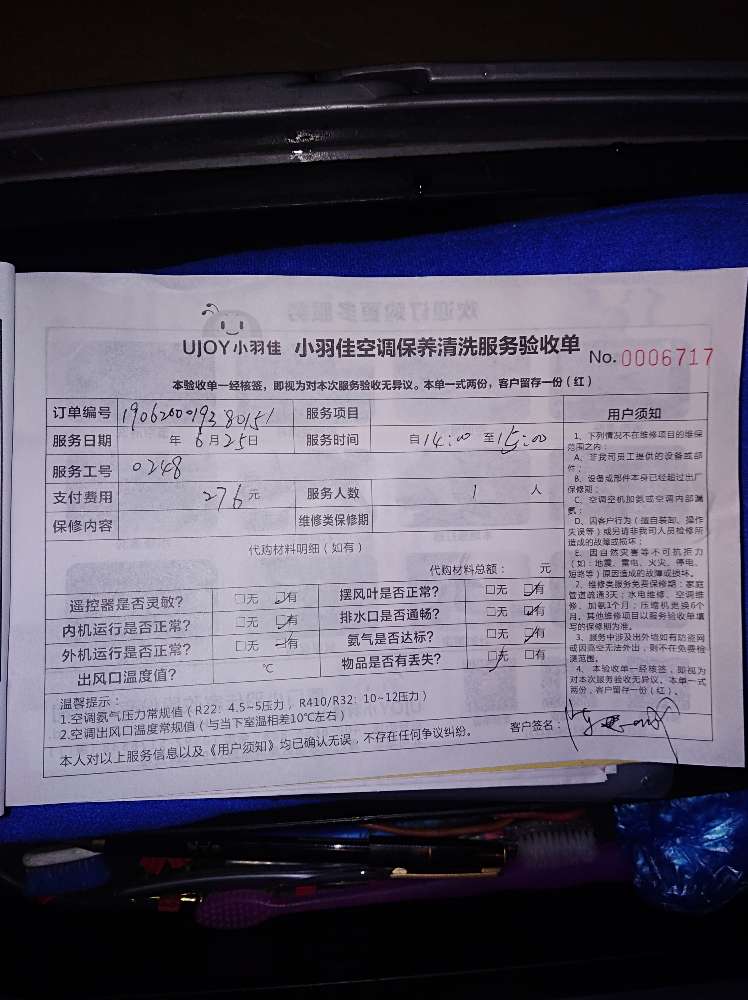 UJOY小羽佳 小羽佳空调保养清洗服务验收单 No.0006717
本验收单一经核签，即视为对本次服务验收无异议。本单一式两份，客户留存一份（红）
订单编号 服务项目
服务日期 年6月25日 服务时间 自14:00 至15:00
服务工号 0248
支付费用 276元 服务人数 1 人
保修内容 维修类保修期
代购材料明细（如有）
代购材料总额： 元
遥控器是否灵敏？ □无 □有 摆风叶是否正常？ □无 □有
内机运行是否正常？ □无 □有 排水口是否通畅？ □无 □有
外机运行是否正常？ □无 □有 氨气是否达标？ □无 □有
出风口温度值？ ℃ 物品是否有丢失？ □无 □有
温馨提示：
1.空调氨气压力常规值（R22：4.5~5压力，R410/R32：10~12压力）
2.空调出风口温度常规值（与当下室温相差10℃左右）
客户签名：
本人对以上服务信息以及《用户须知》均已确认无误，不存在任何争议纠纷。
用户须知
1、下列情况不在维修项目的维保
范围之内：
A、非我司员工提供的设备或部
件；
B、设备或部件本身已经超过出厂
保修期；
C、空调空机加氨或空调内部漏
氨；
D、因客户行为（擅自装卸、操作
失误等）或另请非我司人员检修所
造成的故障或损坏；
E、因自然灾害等不可抗拒力
（如：地震、雷电、火灾、停电、
短路等）原因造成的故障或损坏。
2、维修类服务免费保修期：家庭
管道疏通3天；水电维修、空调维
修、加氨1个月；压缩机更换6个
月。其他维修项目以服务验收单填
写的保修期为准。
3、服务中涉及出外墙如有防盗网
或因高空无法外出，则不在免费检
测范围。
4、本验收单一经核签，即视为
对本次服务验收无异议。本单一式
两份，客户留存一份（红）。